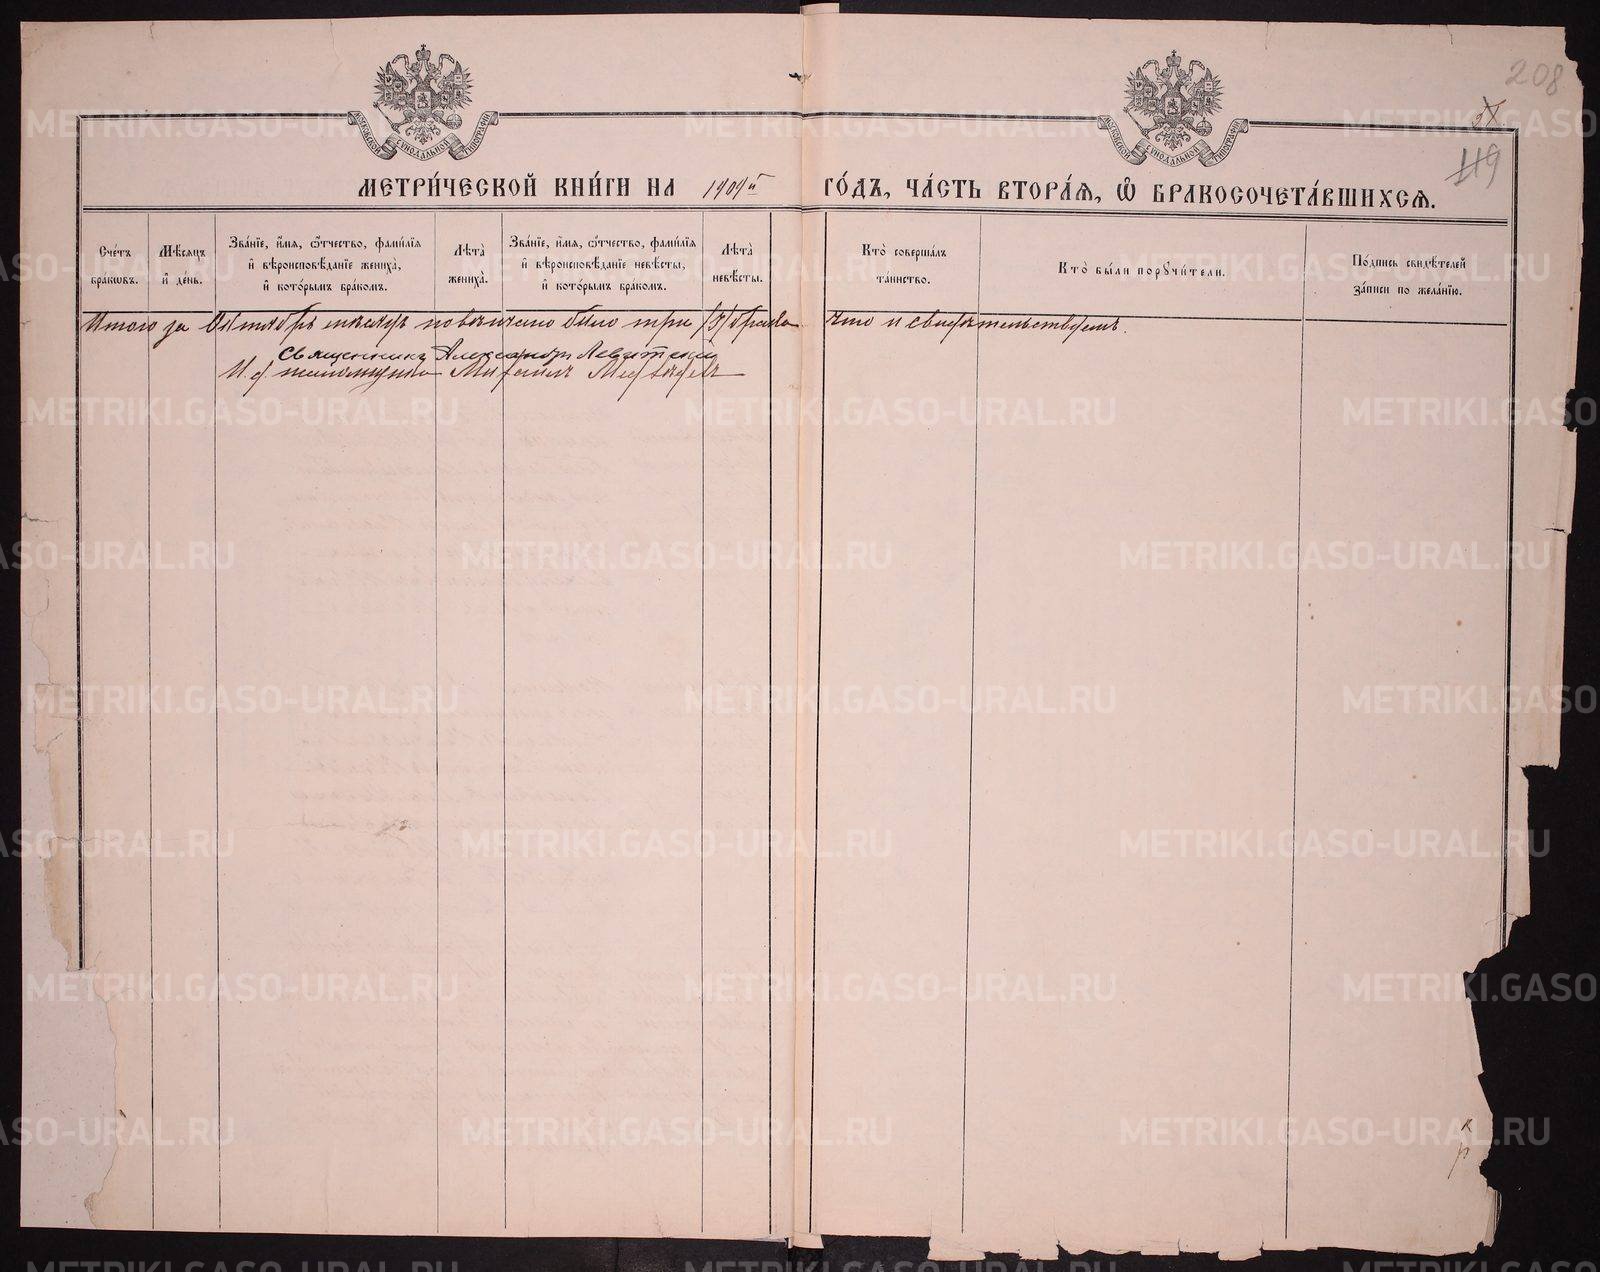 208
119
МОСКОВСКОЙ СѴНОДАЛЬНОЙ ТИПОГРАФІИ
МОСКОВСКОЙ СѴНОДАЛЬНОЙ ТИПОГРАФІИ
МЕТРИ́ЧЕСКОЙ КНИ́ГИ НА 1909й ГО́ДЪ, ЧА́СТЬ ВТОРА́Я, Ѡ҆ БРАКОСОЧЕТА́ВШИХСЯ.
Сче́тъ бра́кωвъ.
Мѣ́сяцъ и҆ де́нь.
Зва́нїе, и҆́мя, ѻ҆́тчество, фами́лїя и҆ вѣроисповѣ́данїе жениха̀, и҆ кото́рымъ бра́комъ.
Лѣ́та жениха̀.
Зва́нїе, и҆́мя, ѻ҆́тчество, фами́лїя и҆ вѣроисповѣ́данїе невѣ́сты, и҆ кото́рымъ бра́комъ.
Лѣ́та невѣ́сты.
Кто̀ соверша́лъ та́инство.
Кто̀ бы́ли порꙋчи́тели.
По́дпись свидѣ́телей за́писи по жела́нїю.
Итого за Октябрь мѣсяцъ повѣнчано было три /3/ брака что и свидѣтельствуемъ.
Священникъ Александръ Левитскій
И. д. псаломщика Михаилъ
METRIKI.GASO-URAL.RU